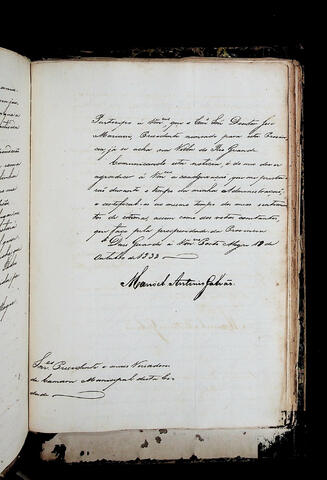 Participo á Vmces que o Exmo Snr Doutor José
Marianni, Presidente nomeado para esta Provin-
cia já se acha na Villa do Rio Grande
Communicando esta noticia, é do meu dever
agradecer a Vmces a coadjuvação que me presta-
rão durante o tempo da minha Administração,
e certifical-os ao mesmo tempo do meu sentimen-
to de estima, assim como dos votos constantes,
que faço pela prosperidade da Provincia
Deos Guarde a Vmces Porto Alegre 18 de
Outubro de 1833
Manoel Antonio Galvão.
Snres Presidente e mais Vereadores
da Camara Municipal desta Ci-
dade